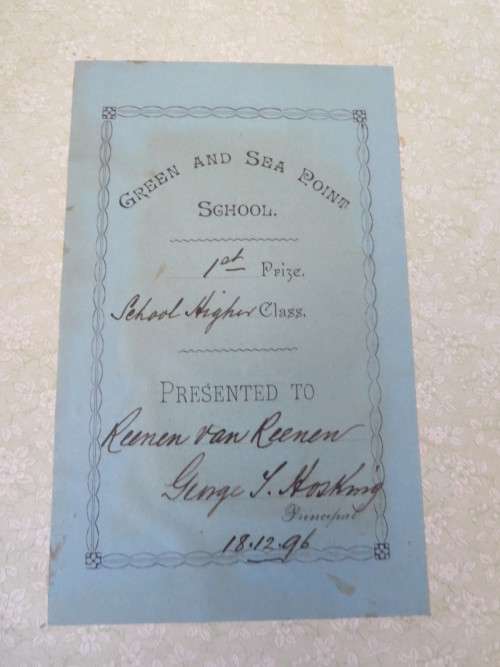 GREEN AND SEA POINT
SCHOOL.
1st Prize.
School Higher Class.
PRESENTED TO
Reenen van Reenen
George S. Hosking
Principal
18.12.96